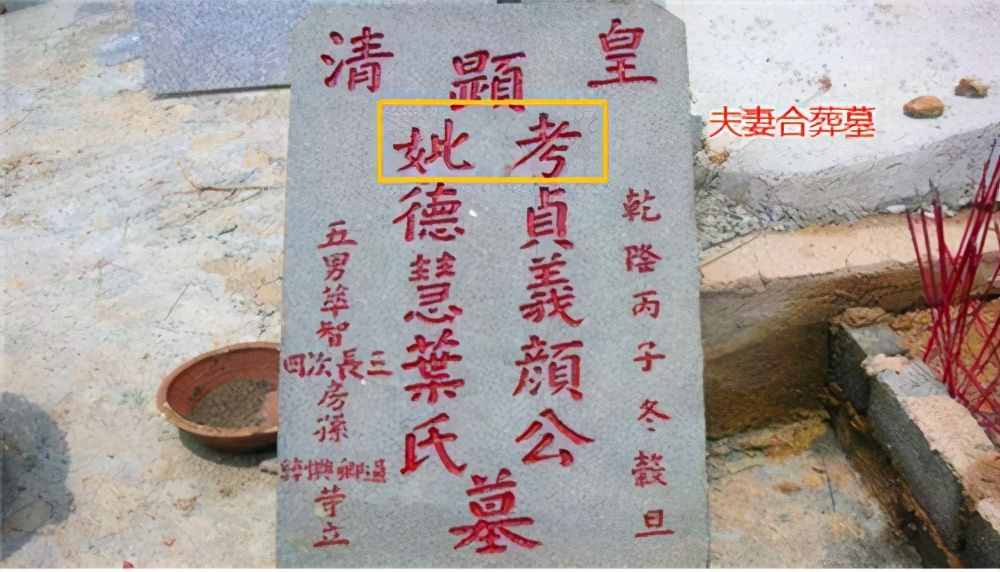 皇清
乾隆丙子冬穀旦
顯
考貞義顏公
妣德慧葉氏
墓
五男萃智
三長次四
房孫
卿
等立
夫妻合葬墓